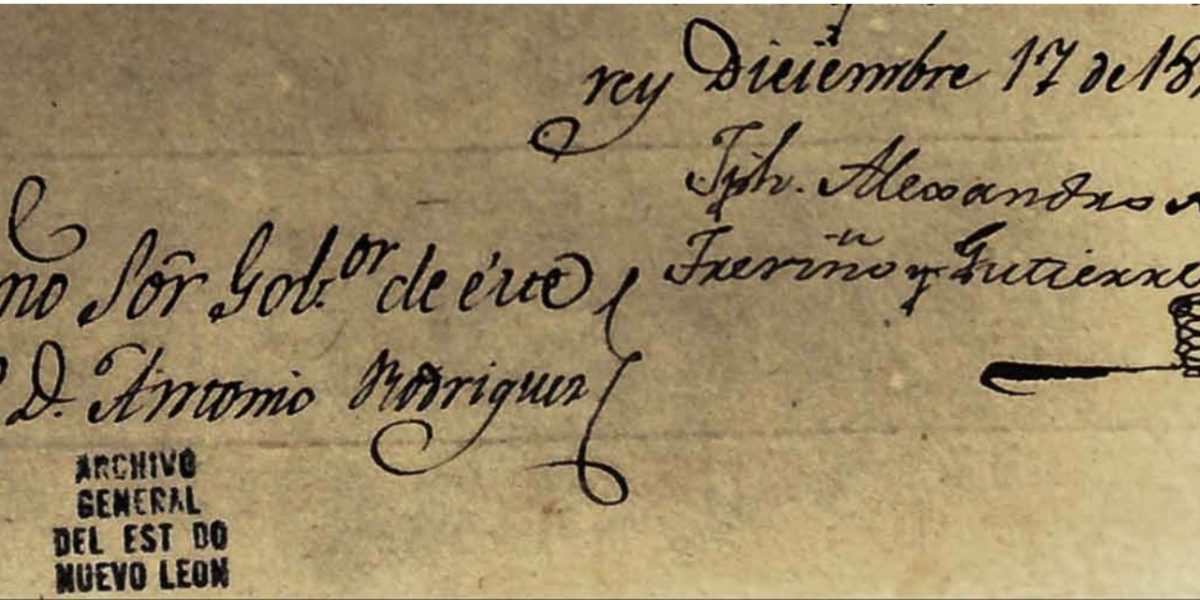 rey Diciembre 17 de 18
Jph. Alexandro
Treviño y Gutierre
no Sör Gob.or de éste
D. Antonio Rodriguez
ARCHIVO
GENERAL
DEL EST DO
NUEVO LEON